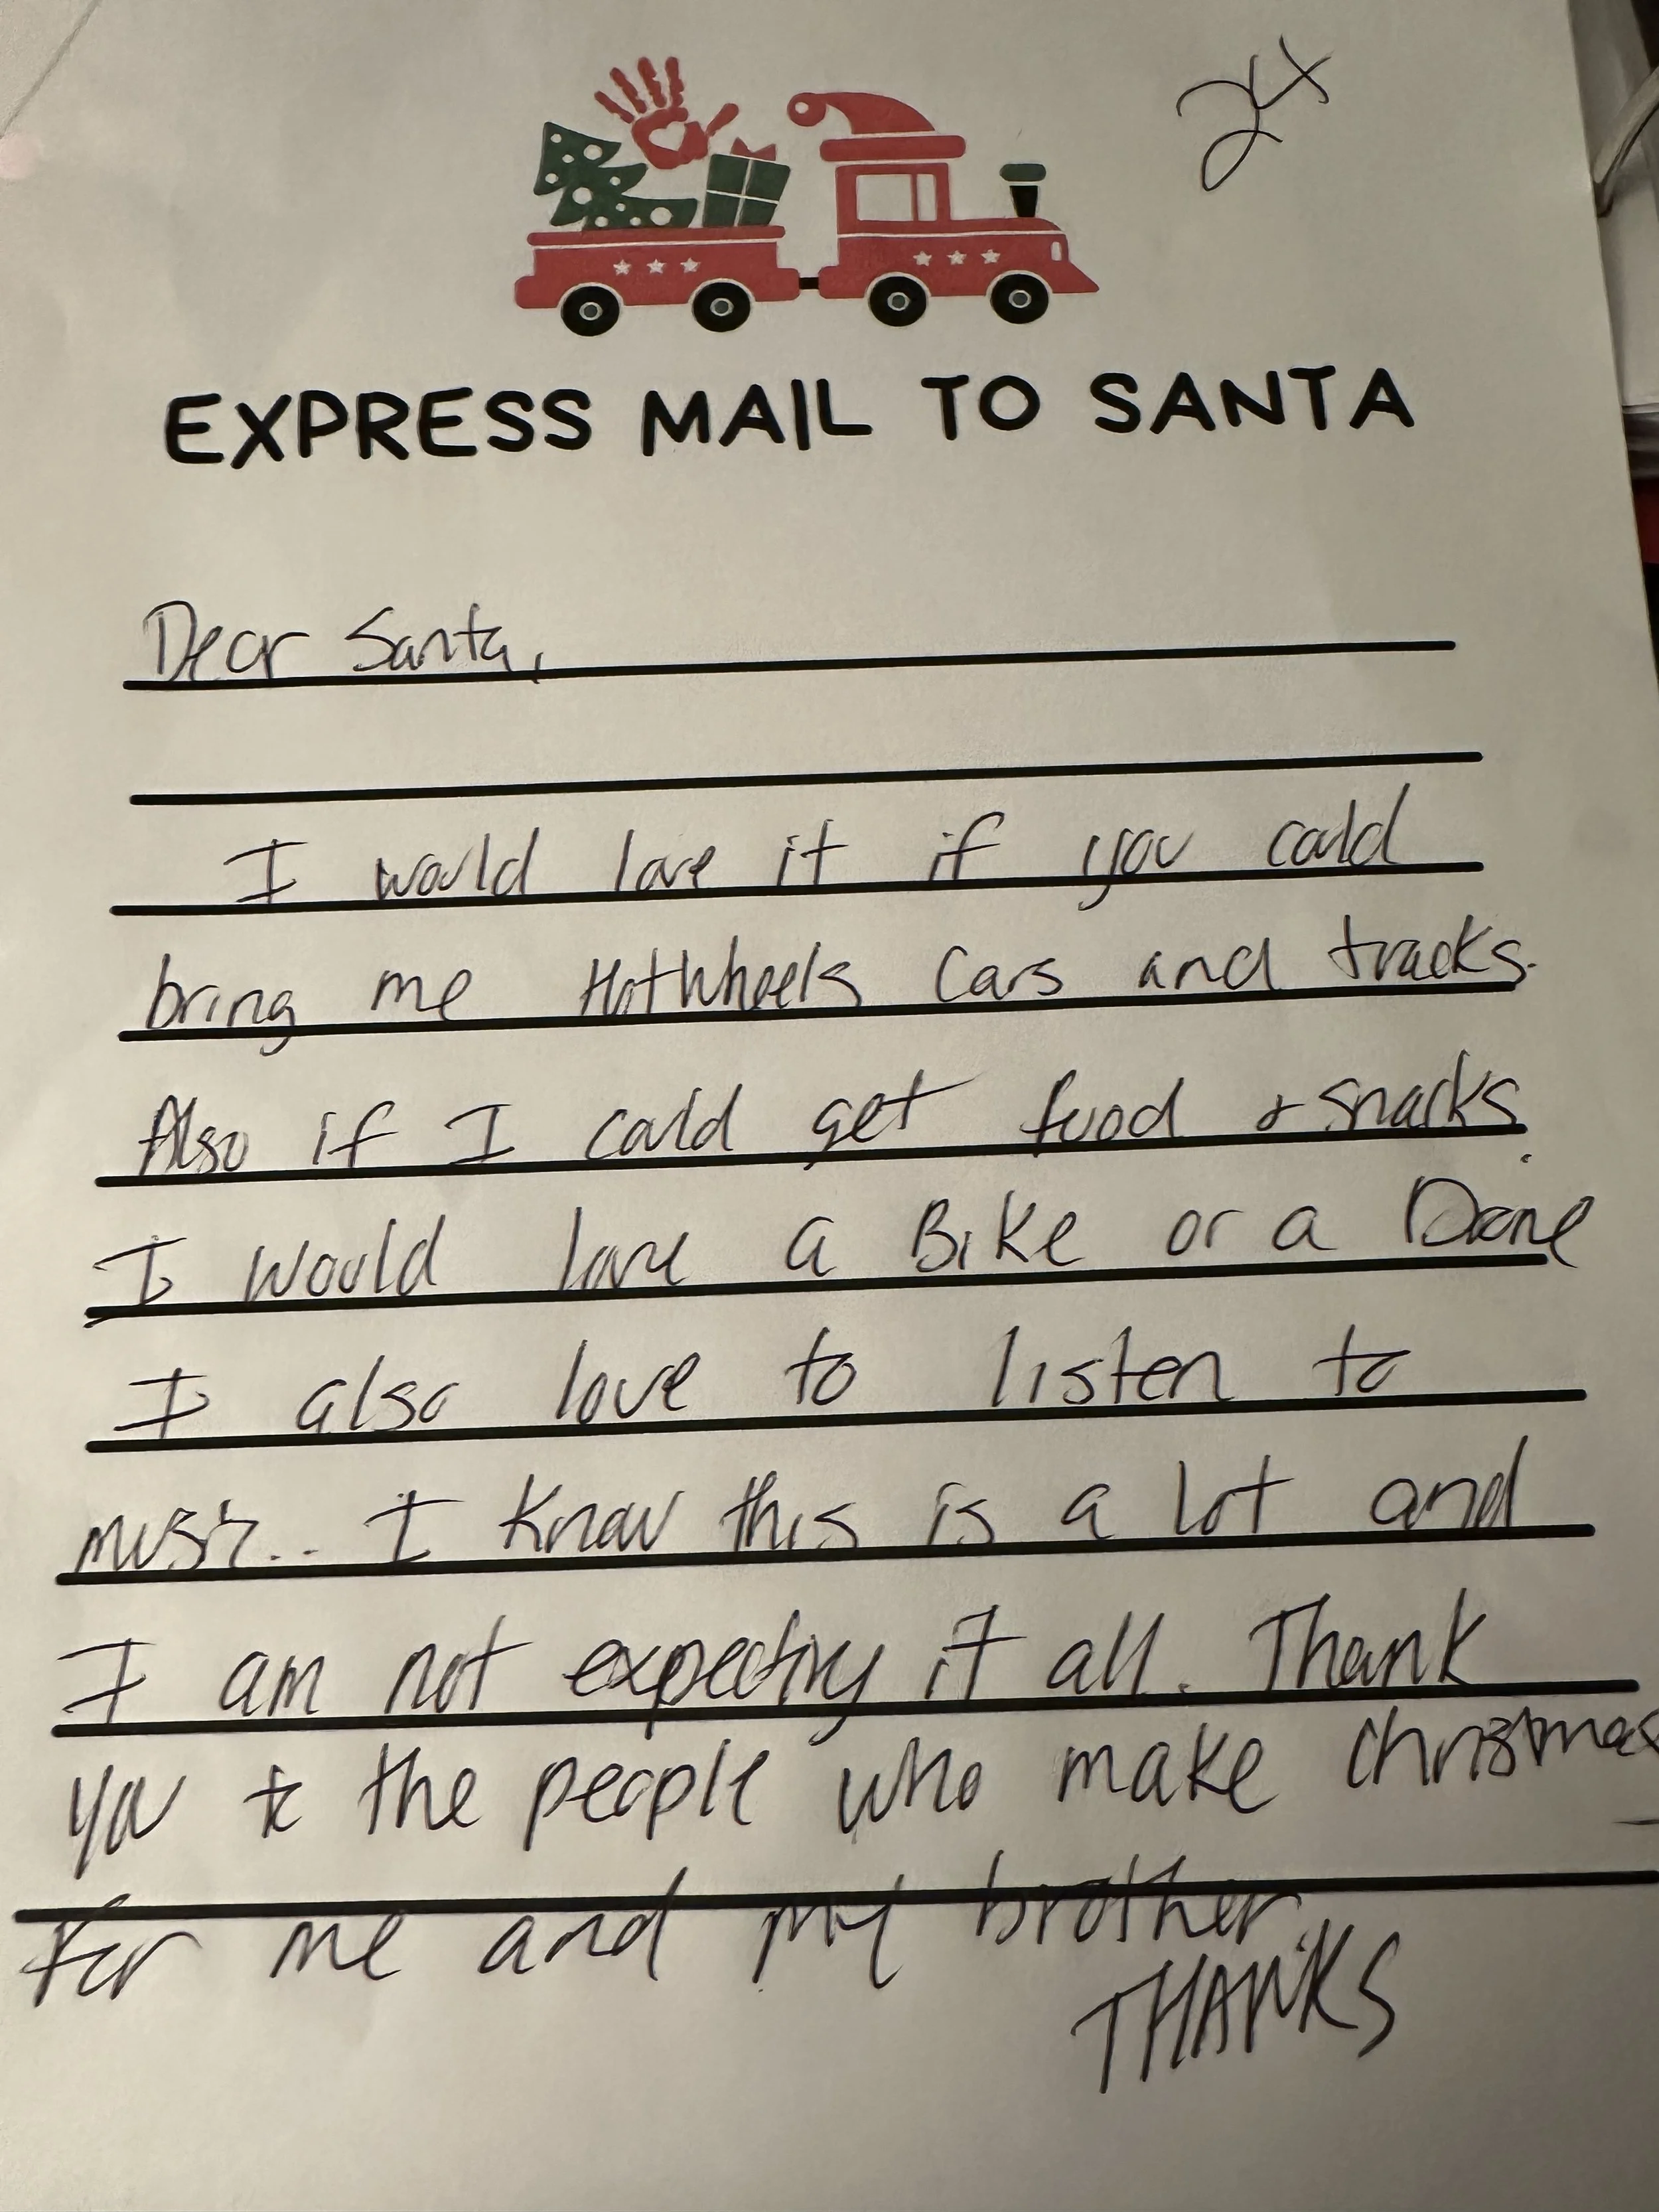 EXPRESS MAIL TO SANTA
Dear Santa,
I would love it if you could
bring me HotWheels Cars and tracks.
Also if I could get food & snacks.
I would love a Bike or a Drone
I also love to listen to
music.. I know this is a lot and
I am not expecting it all. Thank
you to the people who make christmas
For me and my brother
THANKS